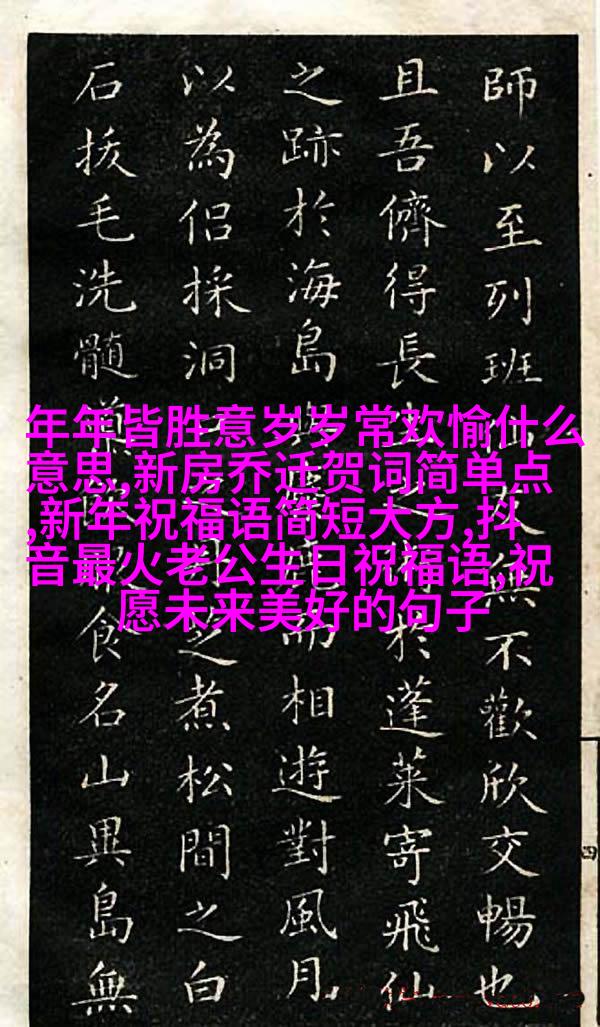 師以至列班無不歡欣交暢也
且吾儕得長於蓬萊寄飛仙
之跡於海島相遊對風月
以為侶採洞之煮松間之白
石拔毛洗髓食名山異島無
年年皆胜意岁岁常欢愉什么
意思,新房乔迁贺词简单点
,新年祝福语简短大方,抖
音最火老公生日祝福语,祝
愿未来美好的句子